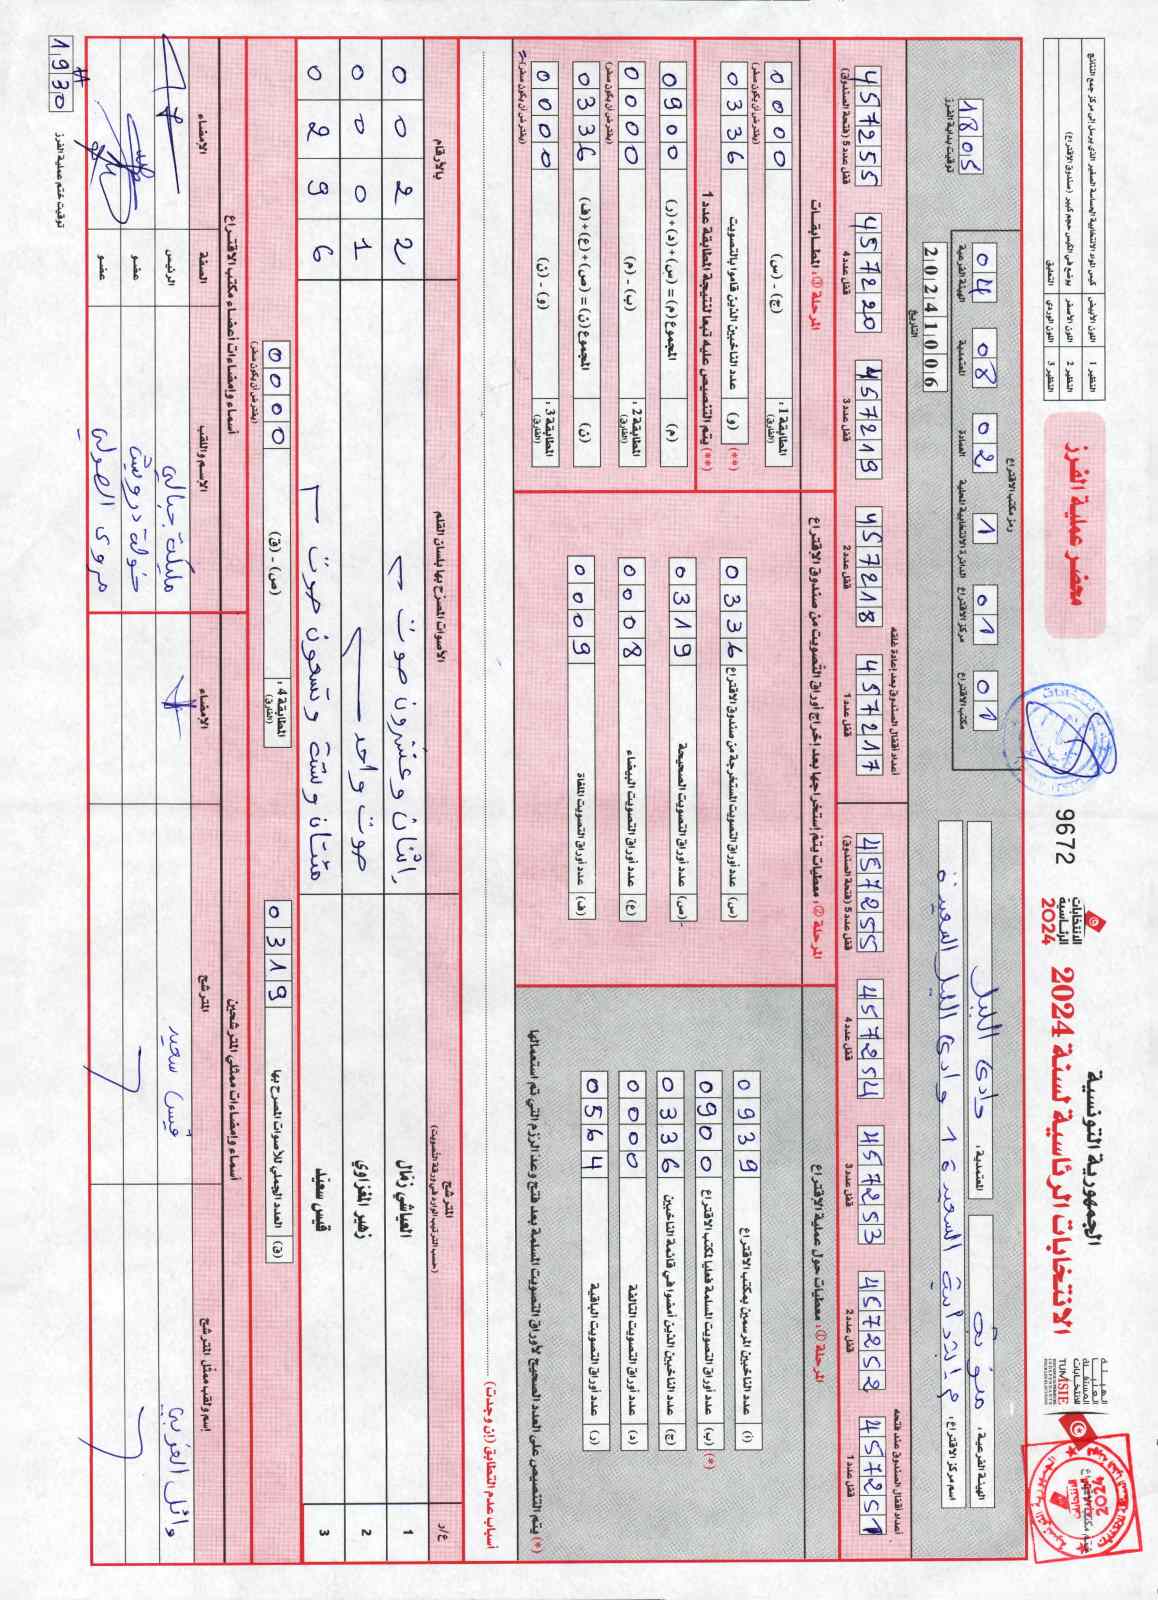 الجمهورية التونسية
الانتخابات الرئاسية لسنة 2024
الانتخابات
الرئاسية
2024
9672
محضر عملية الفرز
النظير 1 اللون الأبيض كيس المواد الانتخابية الحساسة الصغير الذي يرسل إلى مركز جمع النتائج
النظير 2 اللون الأصفر يوضع في الكيس حجم كبير (صندوق الاقتراع)
النظير 3 اللون الوردي التعليق
الهيئة الفرعية: منوبة
المعتمدية: وادي الليل
اسم مركز الاقتراع:
رمز مكتب الاقتراع
04 08 02 1 01 01
الهيئة الفرعية المعتمدية العمادة الدائرة الانتخابية المحلية مركز الاقتراع مكتب الاقتراع
20241006
التاريخ
1805
توقيت بداية الفرز
أعداد أقفال الصندوق عند فتحه
457251 457252 457253 457254 457255
قفل عدد 1 قفل عدد 2 قفل عدد 3 قفل عدد 4 قفل عدد 5 (فتحة الصندوق)
أعداد أقفال الصندوق بعد إعادة غلقه
457217 457218 457219 457220 457255
قفل عدد 1 قفل عدد 2 قفل عدد 3 قفل عدد 4 قفل عدد 5 (فتحة الصندوق)
المرحلة ①: معطيات حول عملية الاقتراع
(أ) عدد الناخبين المرسمين بمكتب الاقتراع 0939
(ب) عدد أوراق التصويت المسلمة فعليا لمكتب الاقتراع 0900 (*)
(ج) عدد الناخبين الذين أمضوا في قائمة الناخبين 0336
(د) عدد أوراق التصويت التالفة 0000
(ر) عدد أوراق التصويت الباقية 0564
(*) يتم التنصيص على العدد الصحيح لأوراق التصويت المسلمة بعد فتح وعد الرزم التي تم استعمالها
المرحلة ②: معطيات يتم إستخراجها بعد إخراج أوراق التصويت من صندوق الاقتراع
(س) عدد أوراق التصويت المستخرجة من صندوق الاقتراع 0336
(ص) عدد أوراق التصويت الصحيحة 0319
(ع) عدد أوراق التصويت البيضاء 0008
(ف) عدد أوراق التصويت الملغاة 0009
المرحلة ③: المطابقات
مطابقة 1: (الفارق) (ج) - (س) 0000 (يفترض أن يكون صفر)
(**) (و) عدد الناخبين الذين قاموا بالتصويت 0336
(**) يتم التنصيص عليه تبعا لنتيجة المطابقة عدد 1
(م) المجموع (م) = (س)+(د)+(ر) 0900
المطابقة 2: (الفارق) (ب) - (م) 0000 (يفترض أن يكون صفر)
(ن) المجموع (ن) = (ص)+(ع)+(ف) 0336
المطابقة 3: (الفارق) (و) - (ن) 0000 (يفترض أن يكون صفر)
أسباب عدم التطابق (إن وجدت)
ع/د المترشح (حسب الترتيب الوارد في ورقة التصويت) الأصوات المصرح بها بلسان القلم بالأرقام
1 العياشي زمال إثنان وعشرون صوت 0022
2 زهير المغزاوي صوت واحد 0001
3 قيس سعيد مئتان وستة وتسعون صوت 0296
(ق) العدد الجملي للأصوات المصرح بها 0319
المطابقة 4: (الفارق) (ص) - (ق) 0000 (يفترض أن يكون صفر)
أسماء وإمضاءات ممثلي المترشحين
إسم ولقب ممثل المترشح المترشح الإمضاء
وائل الغربي قيس سعيد
أسماء وإمضاءات أعضاء مكتب الاقتراع
الإسم واللقب الصفة الإمضاء
مليكة جبالي الرئيس
خولة درويش عضو
مروى الصولي عضو
1930
توقيت ختم عملية الفرز